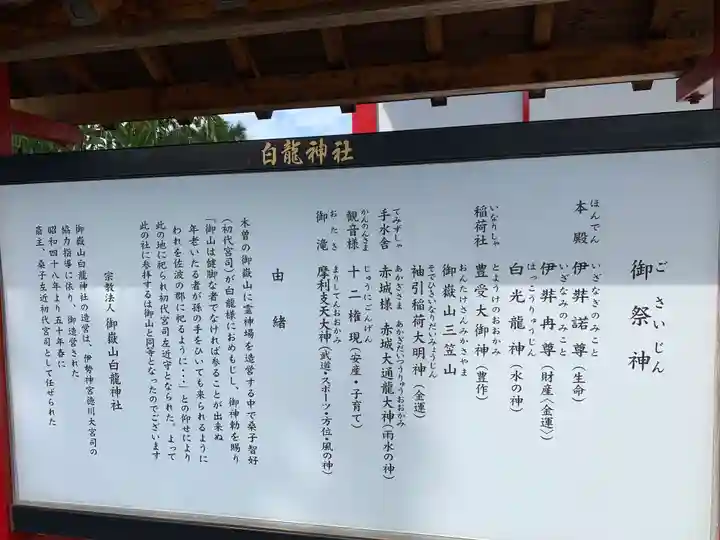 白龍神社
御祭神
ごさいじん
本殿 伊弉諾尊(生命)
ほんでん いざなぎのみこと
伊弉冉尊(財産(金運))
いざなみのみこと
白光龍神(水の神)
はっこうりゅうじん
稲荷社 豊受大御神(豊作)
いなりしゃ とようけのおおかみ
御嶽山三笠山
おんたけさんみかさやま
袖引稲荷大明神(金運)
そでひきいなりだいみょうじん
手水舎 赤城様 赤城大通龍大神(雨水の神)
てみずしゃ あかぎさま あかぎだいつうりゅうおおかみ
観音様 十二権現(安産・子育て)
かんのんさま じゅうにごんげん
御滝 摩利支天大神(武道・スポーツ・方位・風の神)
おたき まりしてんおおかみ
由緒
木曽の御嶽山に霊神場を造営する中で桑子智好
(初代宮司)が白龍様におめもじし、御神勅を賜り
『御山は健脚な者でなければ参ることが出来ぬ
年老いたる者が孫の手をひいても来られるように
われを佐波の郡に祀るように・・』との仰せにより
此の地に祀られ初代宮司左近守となられた。よって
此の社に参拝するは御山と同等となったのでございます
宗教法人 御嶽山白龍神社
御嶽山白龍神社の造営は、伊勢神宮徳川大宮司の
協力指導に依り、御造営された
昭和四十八年より五十年春に
斎主、桑子左近初代宮司として任ぜられた